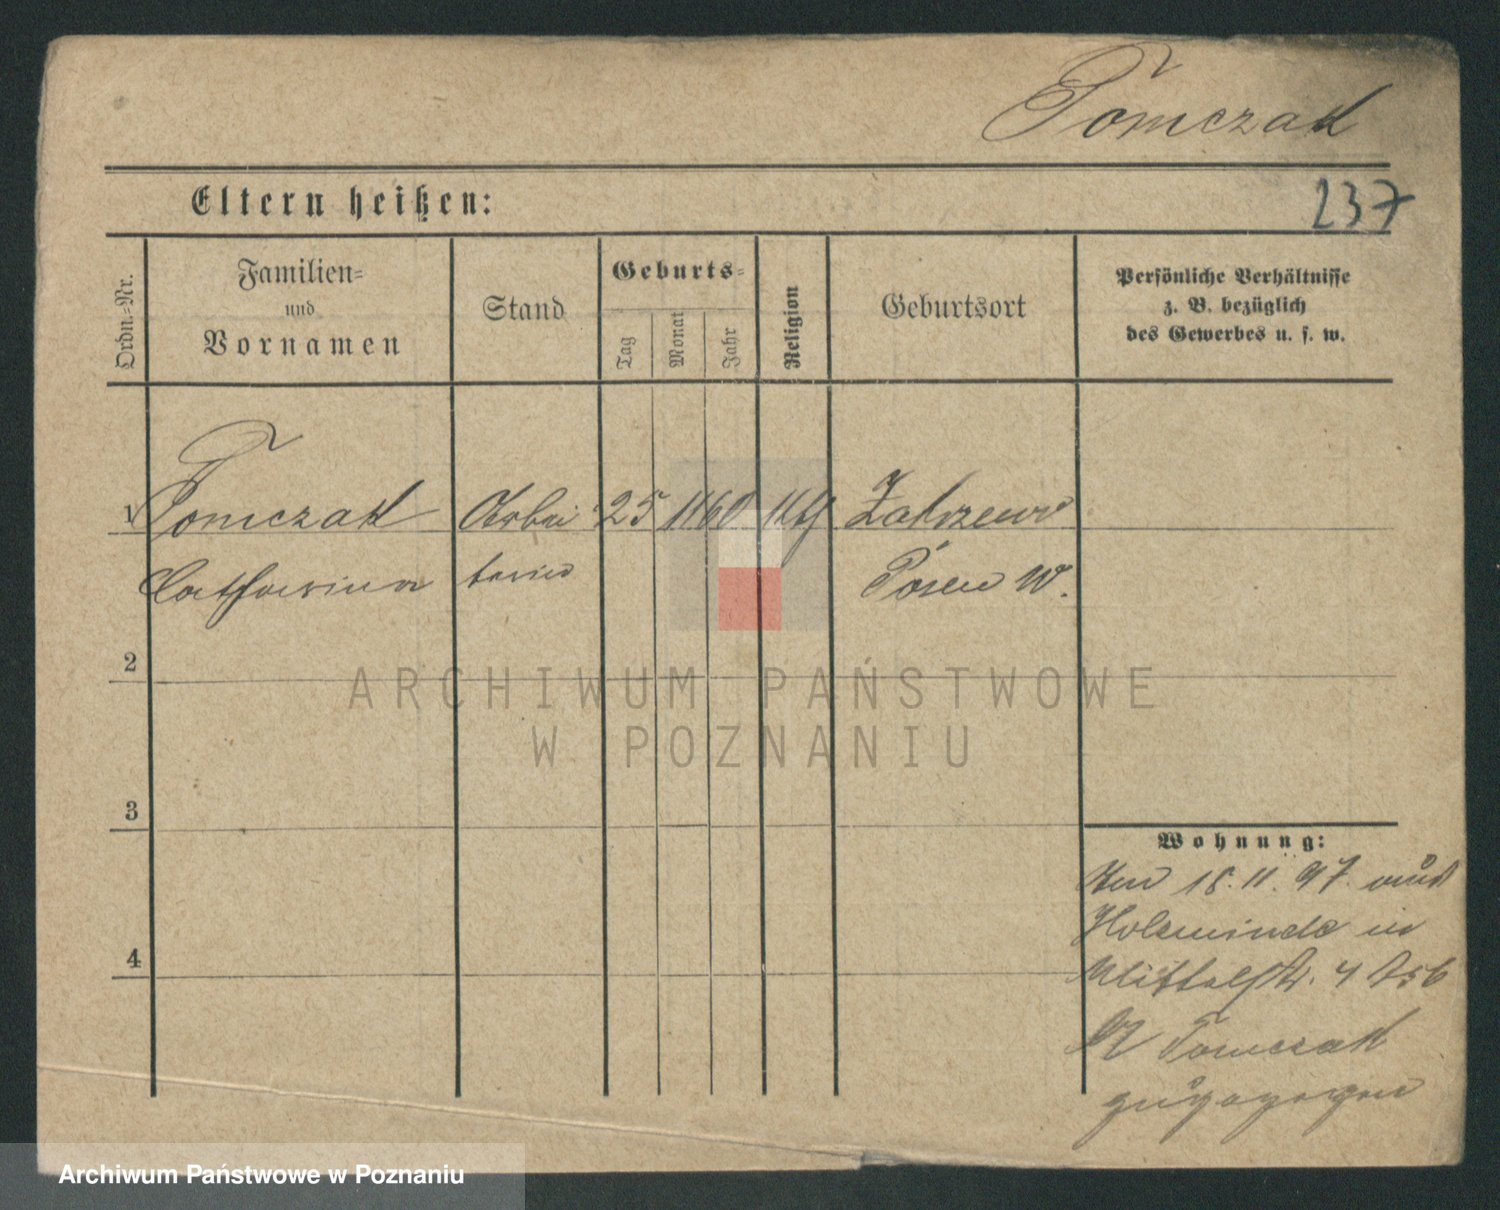 Tomczak
237
Eltern heißen:
Ordn.-Nr.
Familien-
und
Vornamen
Stand
Geburts-
Tag
Monat
Jahr
Religion
Geburtsort
Persönliche Verhältnisse
z. B. bezüglich
des Gewerbes u. s. w.
1 Tomczak Arbei 25 11 60 Zabrzewo
Catharina terin Posen W.
2
3
4
Wohnung:
18.11.97 aus
Holzminde in
Mittelstr. 4
Tomczak
zugezogen
ARCHIWUM PAŃSTWOWE
W POZNANIU
Archiwum Państwowe w Poznaniu